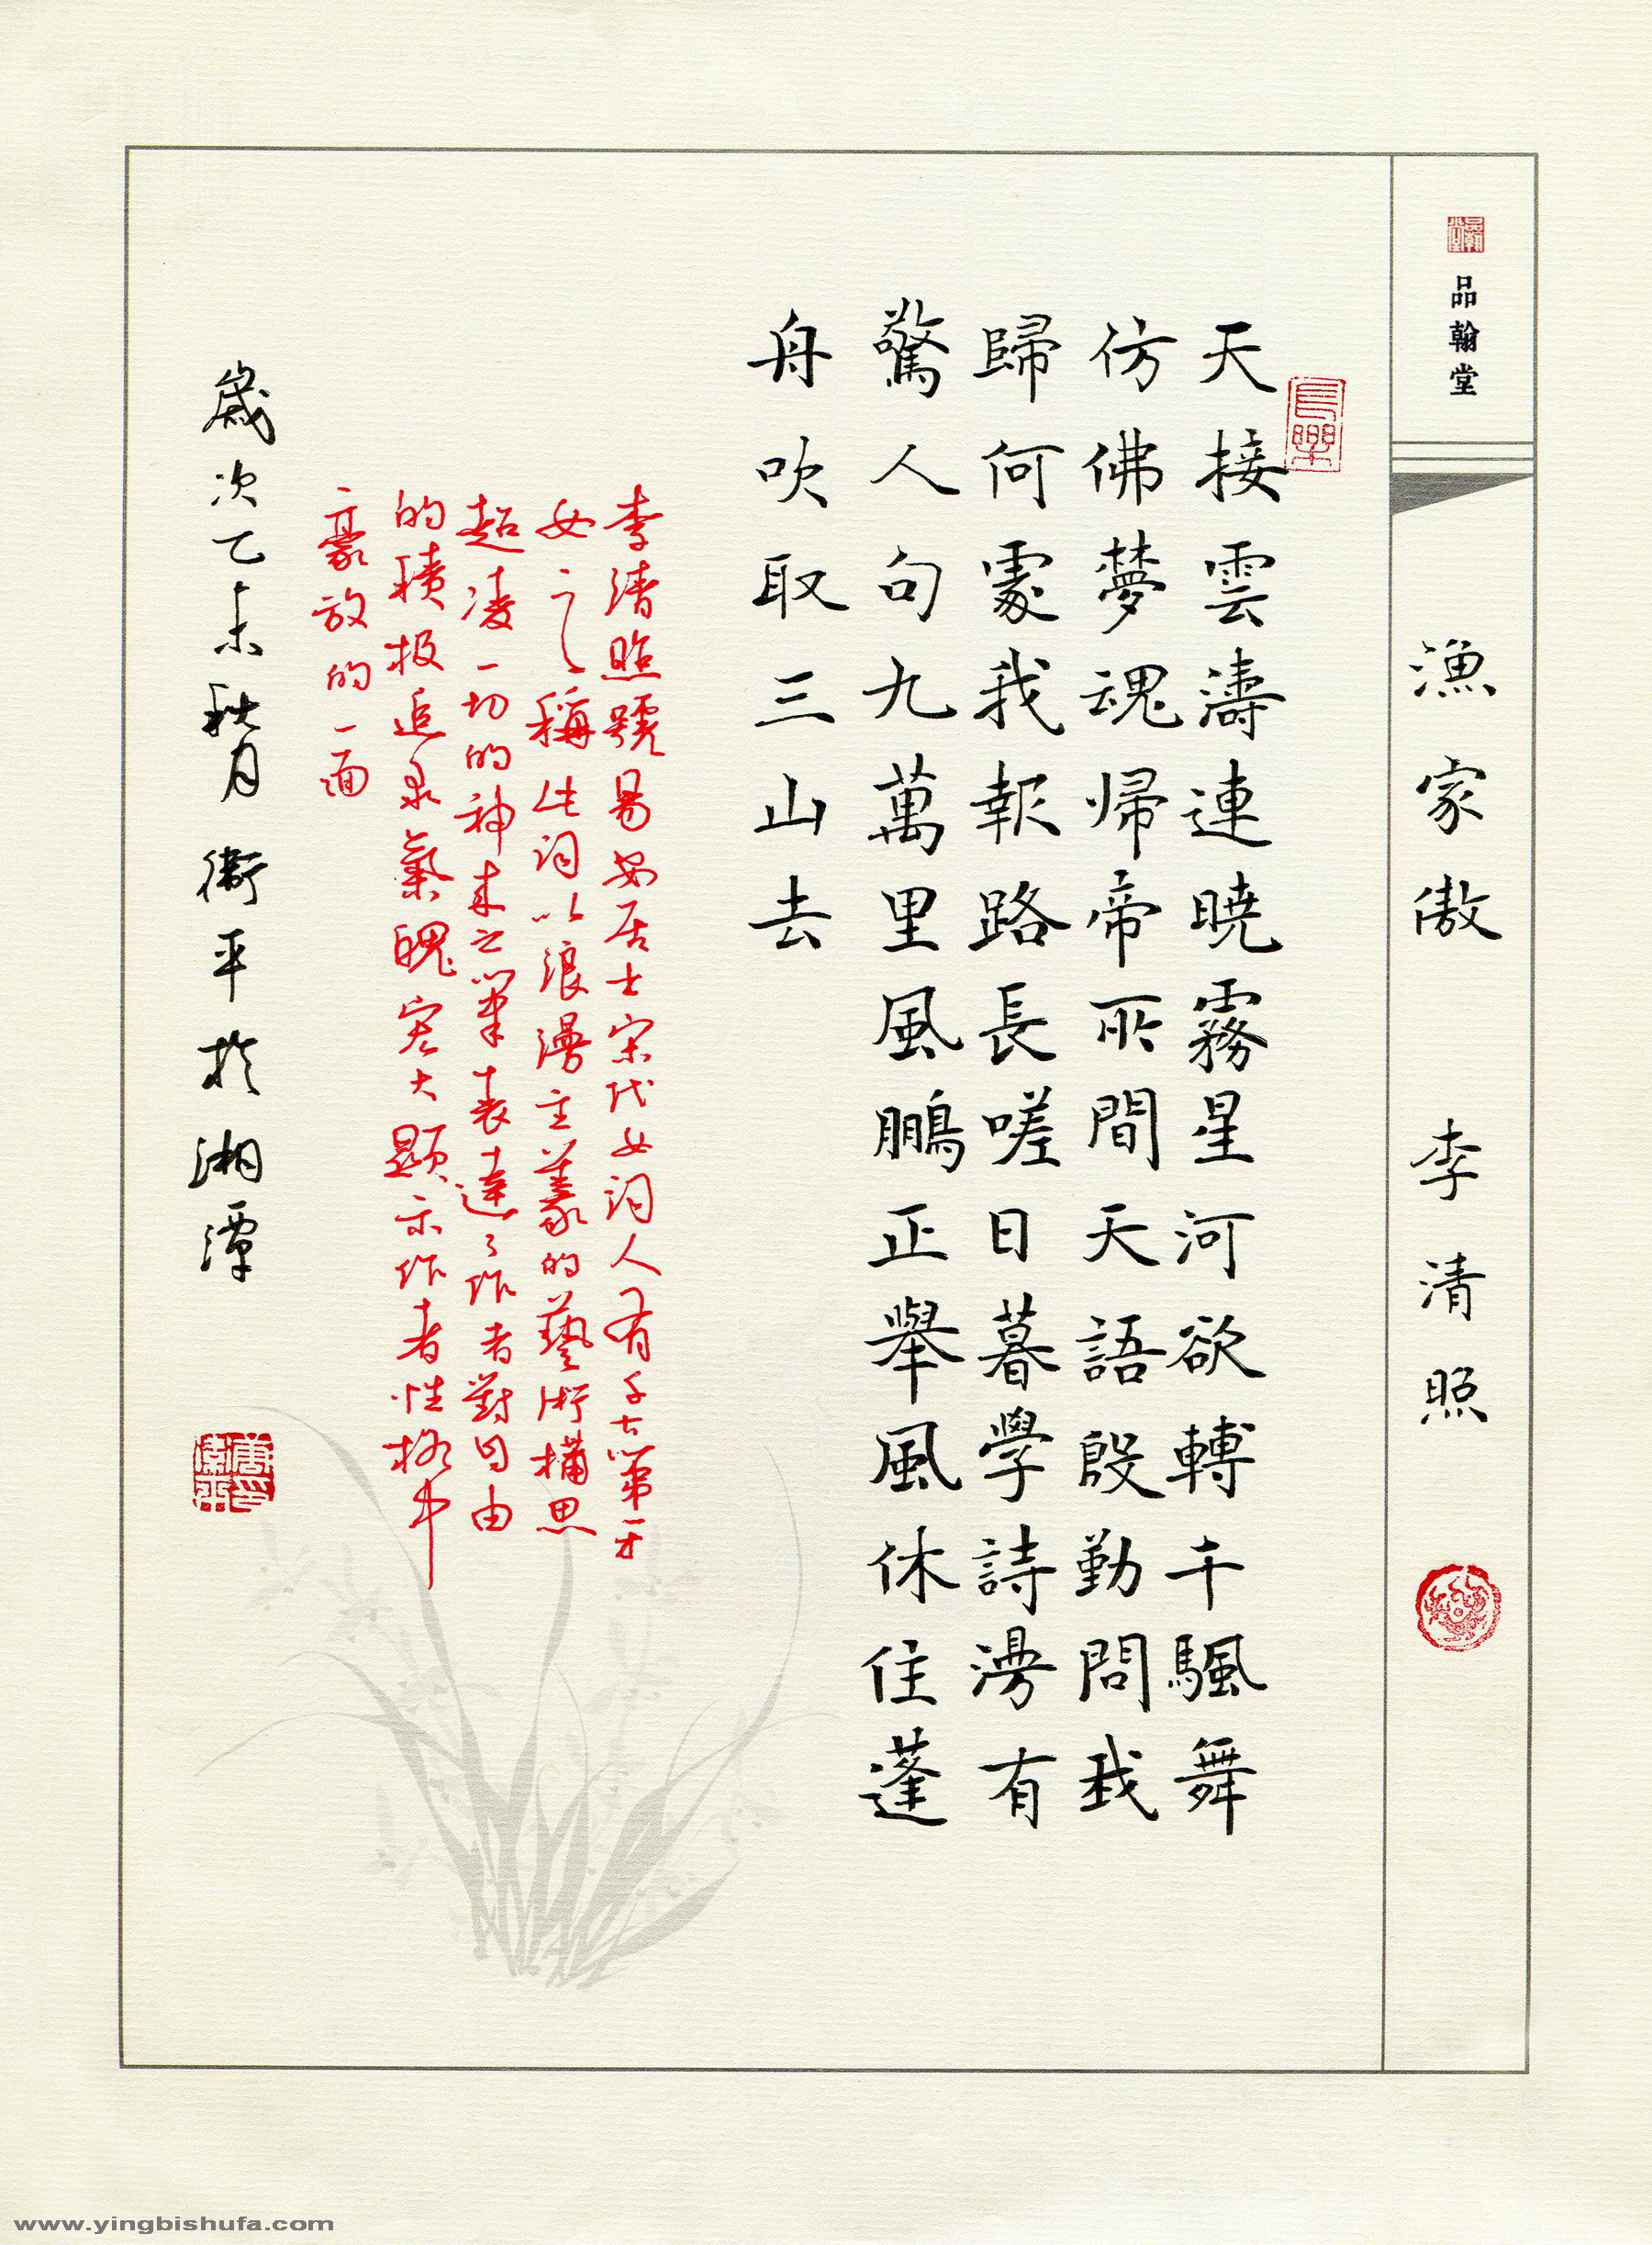 品翰堂
漁家傲 李清照
長樂
天接雲濤連暁霧星河欲轉千颿舞
仿佛夢魂帰帝所間天語殷勤問我
歸何處我報路長嗟日暮學詩漫有
驚人句九萬里風鵬正舉風休住蓬
舟吹取三山去
李清照號易安居士宋代女詞人有千古第一才
女之稱此詞以浪漫主義的藝術構思
超凌一切的神来之筆表達了作者對自由
的積極追求氣魄宏大顯示作者性格中
豪放的一面
歲次乙未秋月衛平於湘潭
www.yingbishufa.com